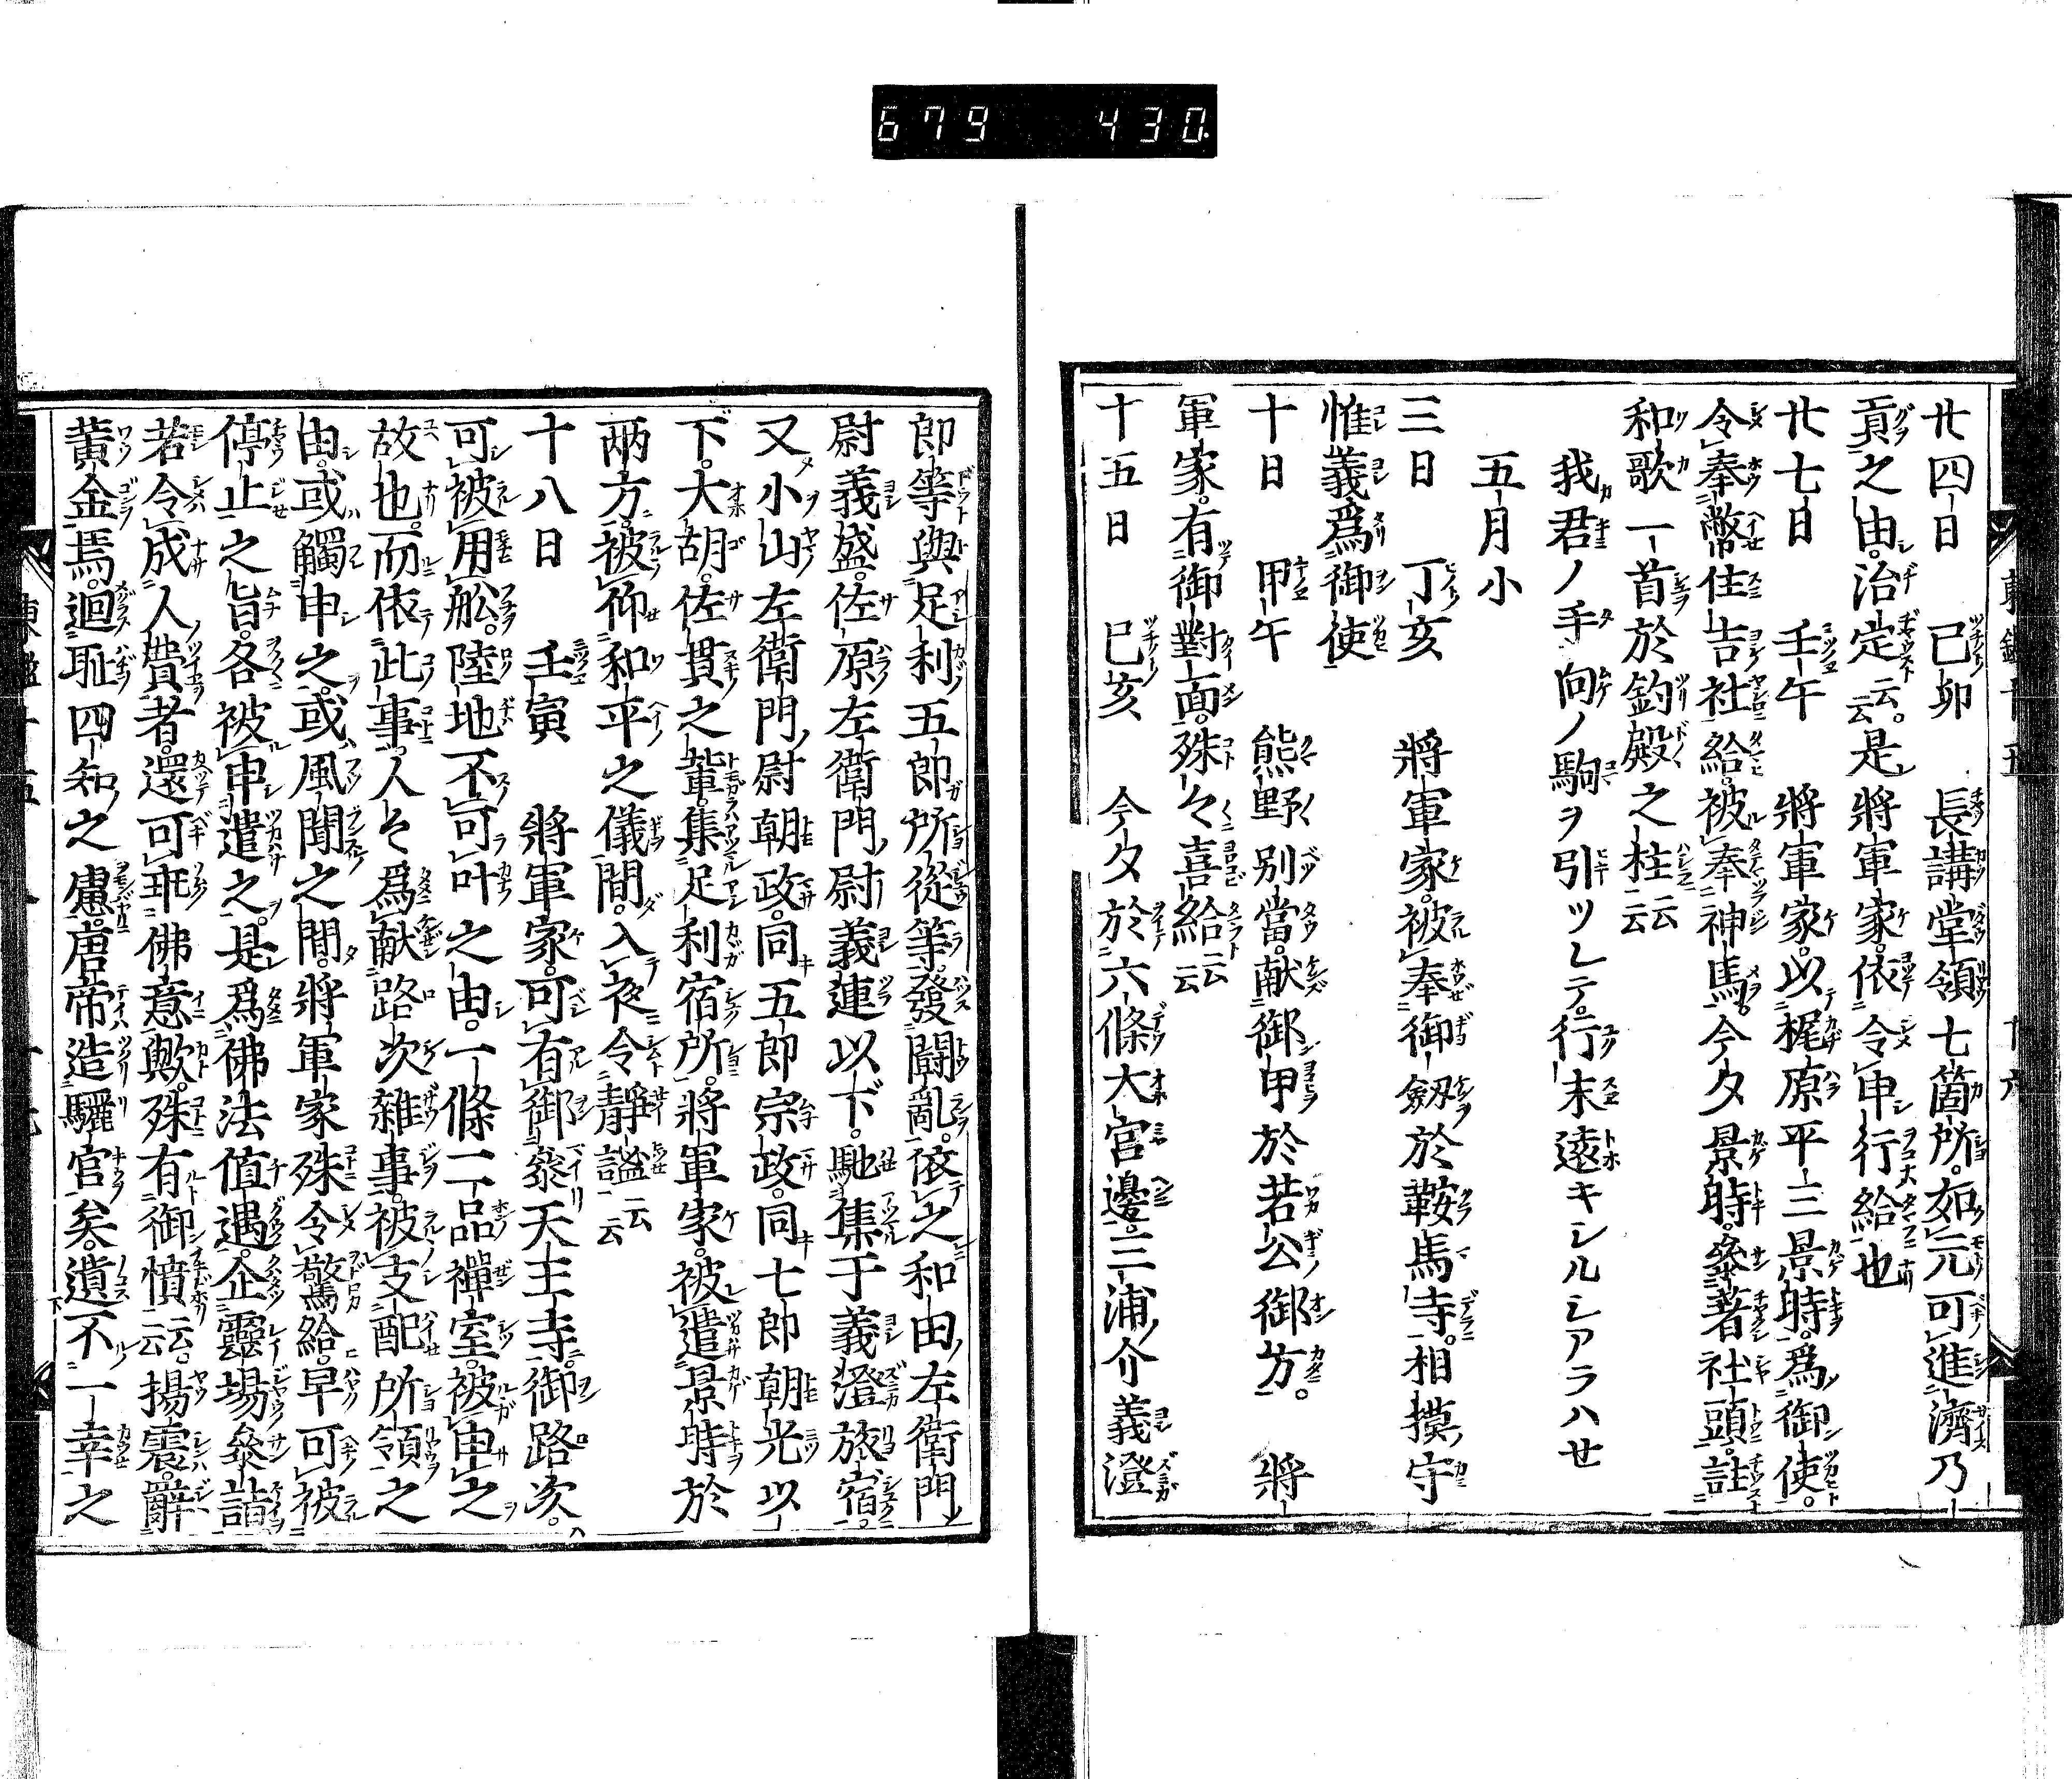 679 430
廿四日 已卯 長講堂領七箇所如元可進濟乃
貢之由治定云云是將軍家依令申行給也
廿七日 壬午 將軍家以梶原平三景時爲御使
令奉幣住吉社給被奉神馬今夕景時參著社頭註
和歌一首於釣殿之柱云云
我君ノ手向ノ駒ヲ引ツレテ行末遠キシルシアラハセ
五月小
三日 丁亥 將軍家被奉御劔於鞍馬寺相摸守
惟義爲御使
十日 甲午 熊野別當献御甲於若公御方 將
軍家有御對面殊々喜給云云
十五日 已亥 今夕於六條大宮邊三浦介義澄
郎等與足利五郎所從等發鬪亂依之和田左衛門
尉義盛佐原左衛門尉義連以下馳集于義澄旅宿
又小山左衛門尉朝政同五郎宗政同七郎朝光以
下大胡佐貫之輩集足利宿所將軍家被遣景時於
兩方被仰和平之儀間入夜令靜謐云云
十八日 壬寅 將軍家可有御參天王寺御路次
可被用舩陸地不可叶之由一條二品禪室被申之
故也而依此事人々爲献路次雜事被支配所領之
由或觸申之或風聞之間將軍家殊令驚給早可被
停止之旨各被申遣之是爲佛法値遇企靈場參詣
若令成人費者還可乖佛意歟殊有御憤云云揚震辭
黄金焉迴耻四知之慮唐帝造驪宮矣遺不一幸之